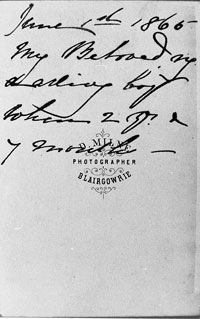 June 1st 1865
My Beloved
darling boy
when 2 yrs &
7 months —
D. MILNE
PHOTOGRAPHER
BLAIRGOWRIE